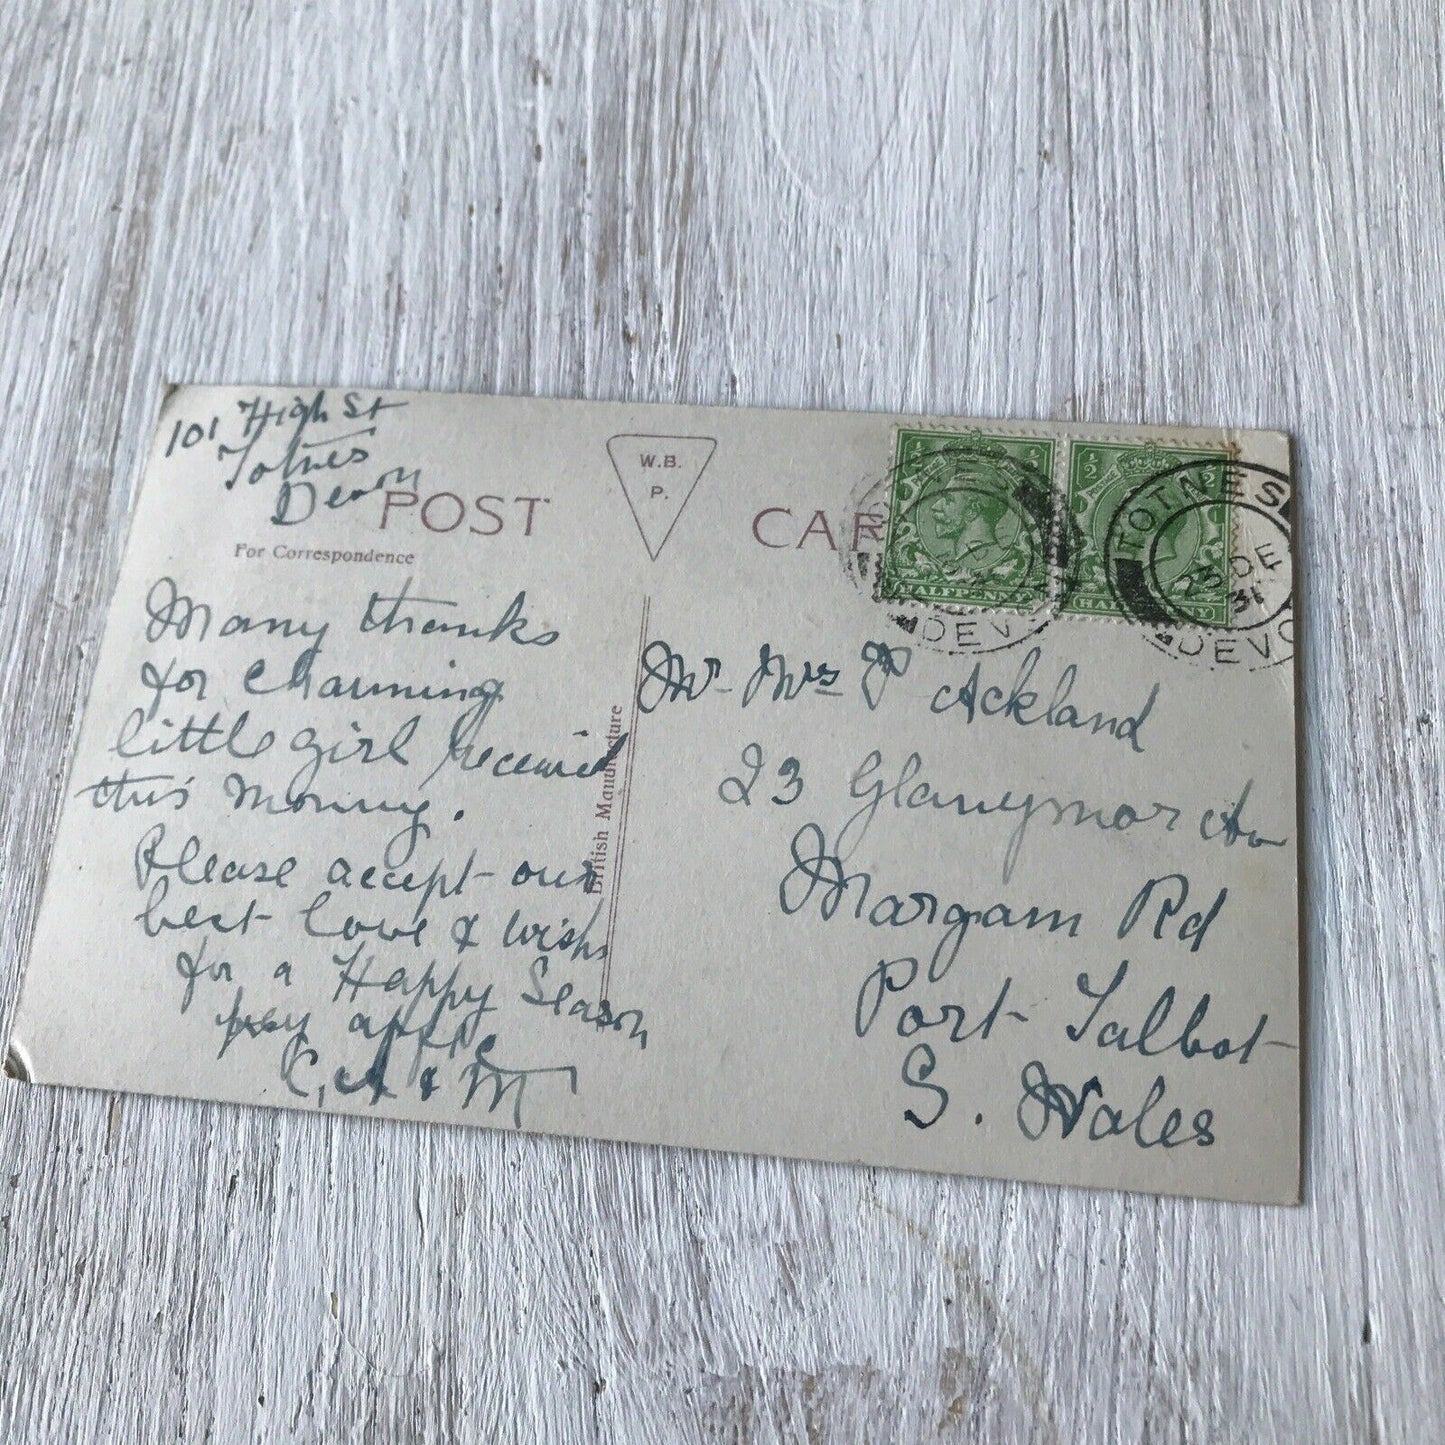 101 High St
Totnes
Devon
POST CAR
W.B.
P.
For Correspondence
Many thanks
for charming
little girl received
this morning.
Please accept our
best love & wishs
for a Happy Season
C, A & M
British Manufacture
Mr Mrs P Ackland
23 Glanymor Av
Margam Rd
Port Talbot
S. Wales
½ ½
HALFPENNY
DEV
½ ½
HALFPENNY
TOTNES
23 DE
31
DEVO